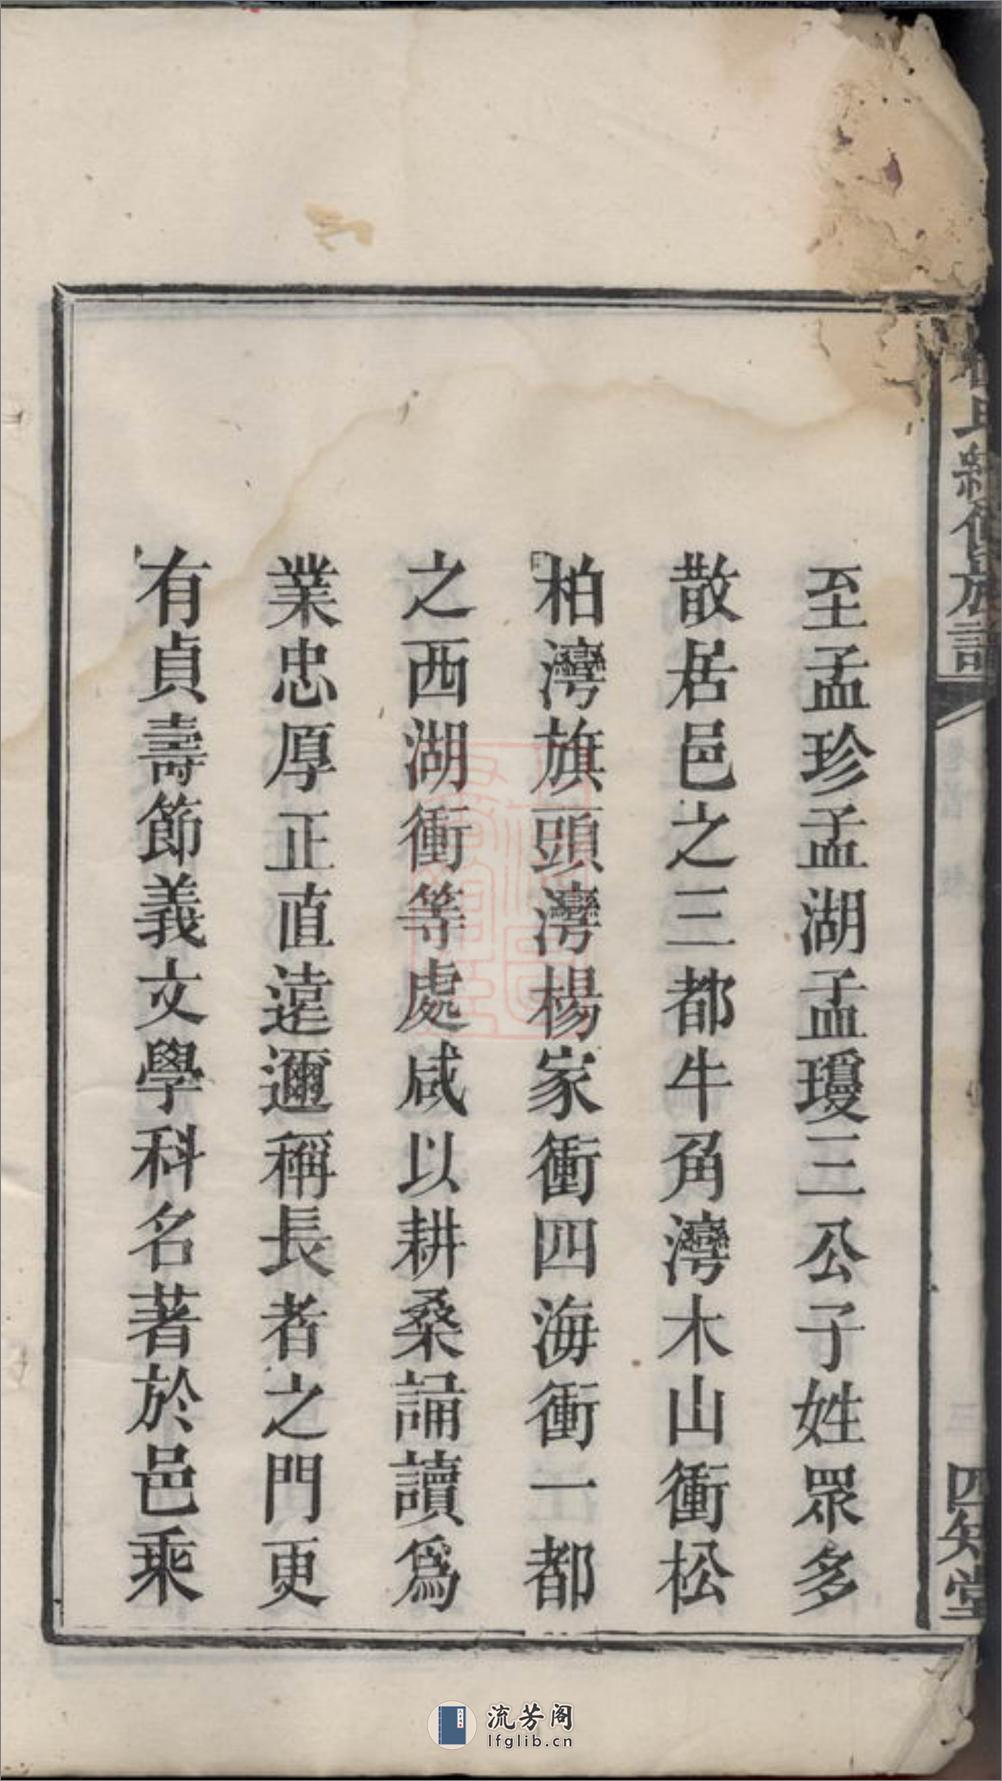 氏續修族譜
四知堂
至孟珍孟湖孟瓊三公子姓眾多
散居邑之三都牛角灣木山衝松
柏灣旗頭灣楊家衝四海衝一都
之西湖衝等處咸以耕桑誦讀為
業忠厚正直遠邇稱長者之門更
有貞壽節義文學科名著於邑乘
流芳阁
lfglib.cn